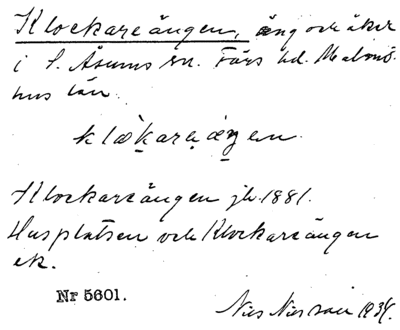 Klockareängen, äng och åker
i S. Åsums sn. Färs hd. Malmö-
hus län.
Klockareängen jb. 1881.
Husplatsen och Klockareängen
ek.
Nr 5601.
Nils Nilsson 1934.